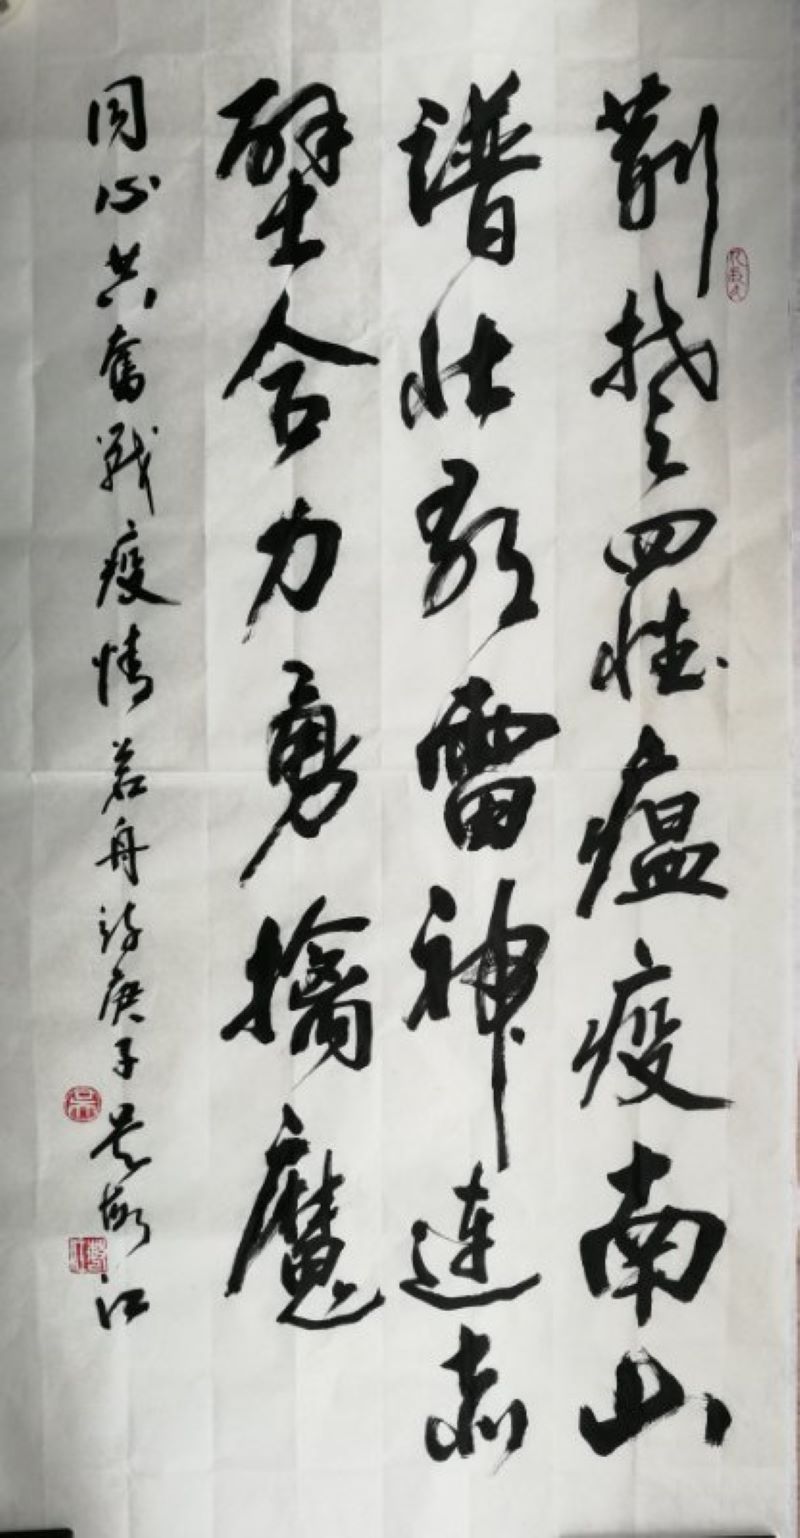 荆楚四陆瘟疫南山
谱壮歌雷神连赤
壁合力勇擒魔
同心共奋战疫情若舟诗庚子吴江